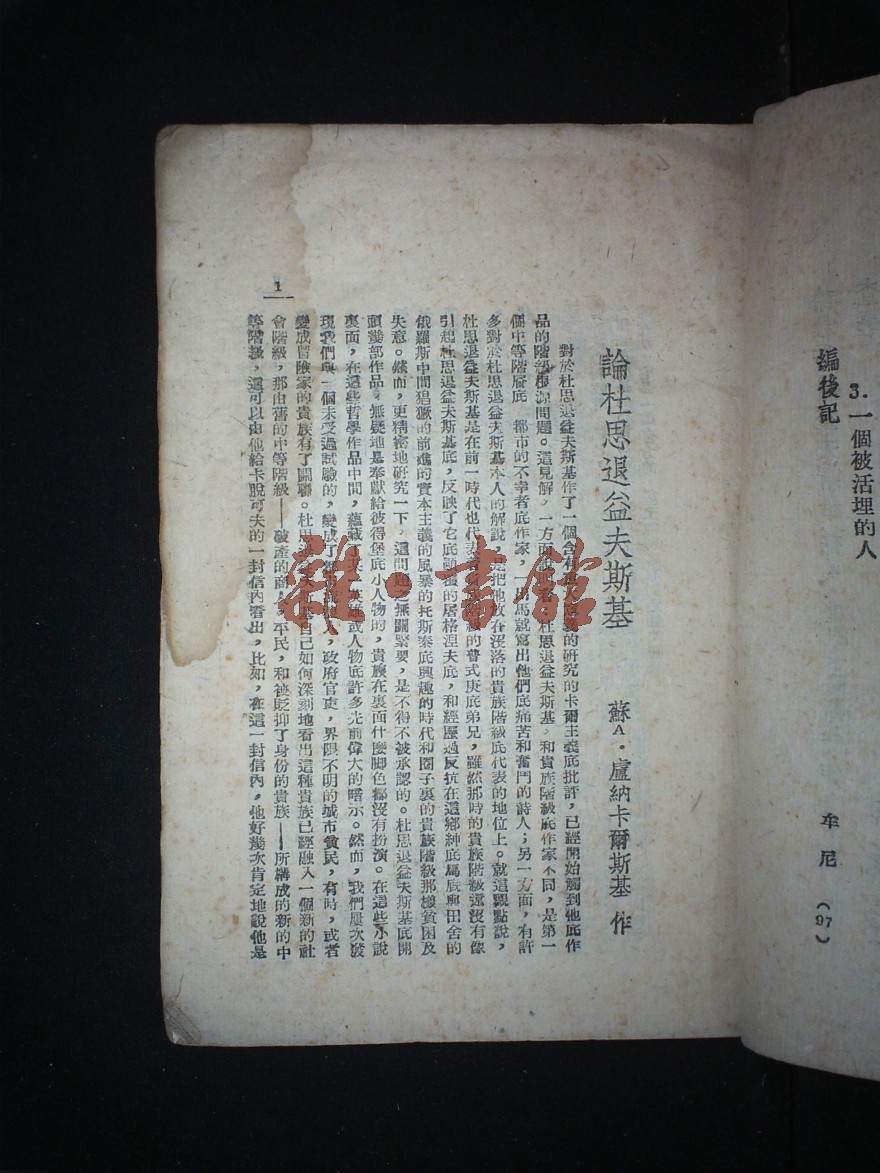 3. 一個被活理的人
編後記
牟尼 (97)
論杜思退益夫斯基
蘇 A．盧納卡爾斯基 作
對於杜思退益夫斯基作了一個含有的研究的卡爾主義底批評，已經開始觸到他底作
品的階級根源問題。這見解，一方面說明着杜思退益夫斯基，和貴族階級底作家不同，是第一
個中等階層底，都市的不幸者底作家，一出馬就寫出他們底痛苦和奮鬥的詩人；另一方面，有許
多對於杜思退益夫斯基本人的解說，是把他放在沒落的貴族階級底代表的地位上。就這觀點說，
杜思退益夫斯基是在前一時代也代表的普式庚底弟兄，雖然那時的貴族階級還沒有像
引起杜思退益夫斯基底，反映了它底顧後的屠格涅夫底，和經歷過反抗在這鄉紳底馬廄與田舍的
俄羅斯中間猖獗的前進的資本主義的風暴的托斯泰底興趣的時代和圈子裏的貴族階級那樣貧困及
失意。然而，更精密地研究一下，這問題之無關緊要，是不得不被承認的。杜思退益夫斯基底開
頭幾部作品，無疑地是奉獻給彼得堡底小人物的，貴族在裏面什麼脚色都沒有扮演。在這些小說
裏面，在這些哲學作品中間，蘊藏了某一英雄或人物底許多光前偉大的暗示。然而，我們屢次發
現我們與一個未受過試驗的，變成了人，政府官吏，界限不明的城市貧民，有時，或者
變成冒險家的貴族有了關聯。杜思退益夫斯基自己如何深刻地看出這種貴族已經融入一個新的社
會階級，那由舊的中等階級——破產的商人，平民，和被貶抑了身份的貴族——所構成的新的中
等階級，這可以由他給卡脫可夫的一封信內看出，比如，在這一封信內，他好幾次肯定地說他是
1
雜·書館